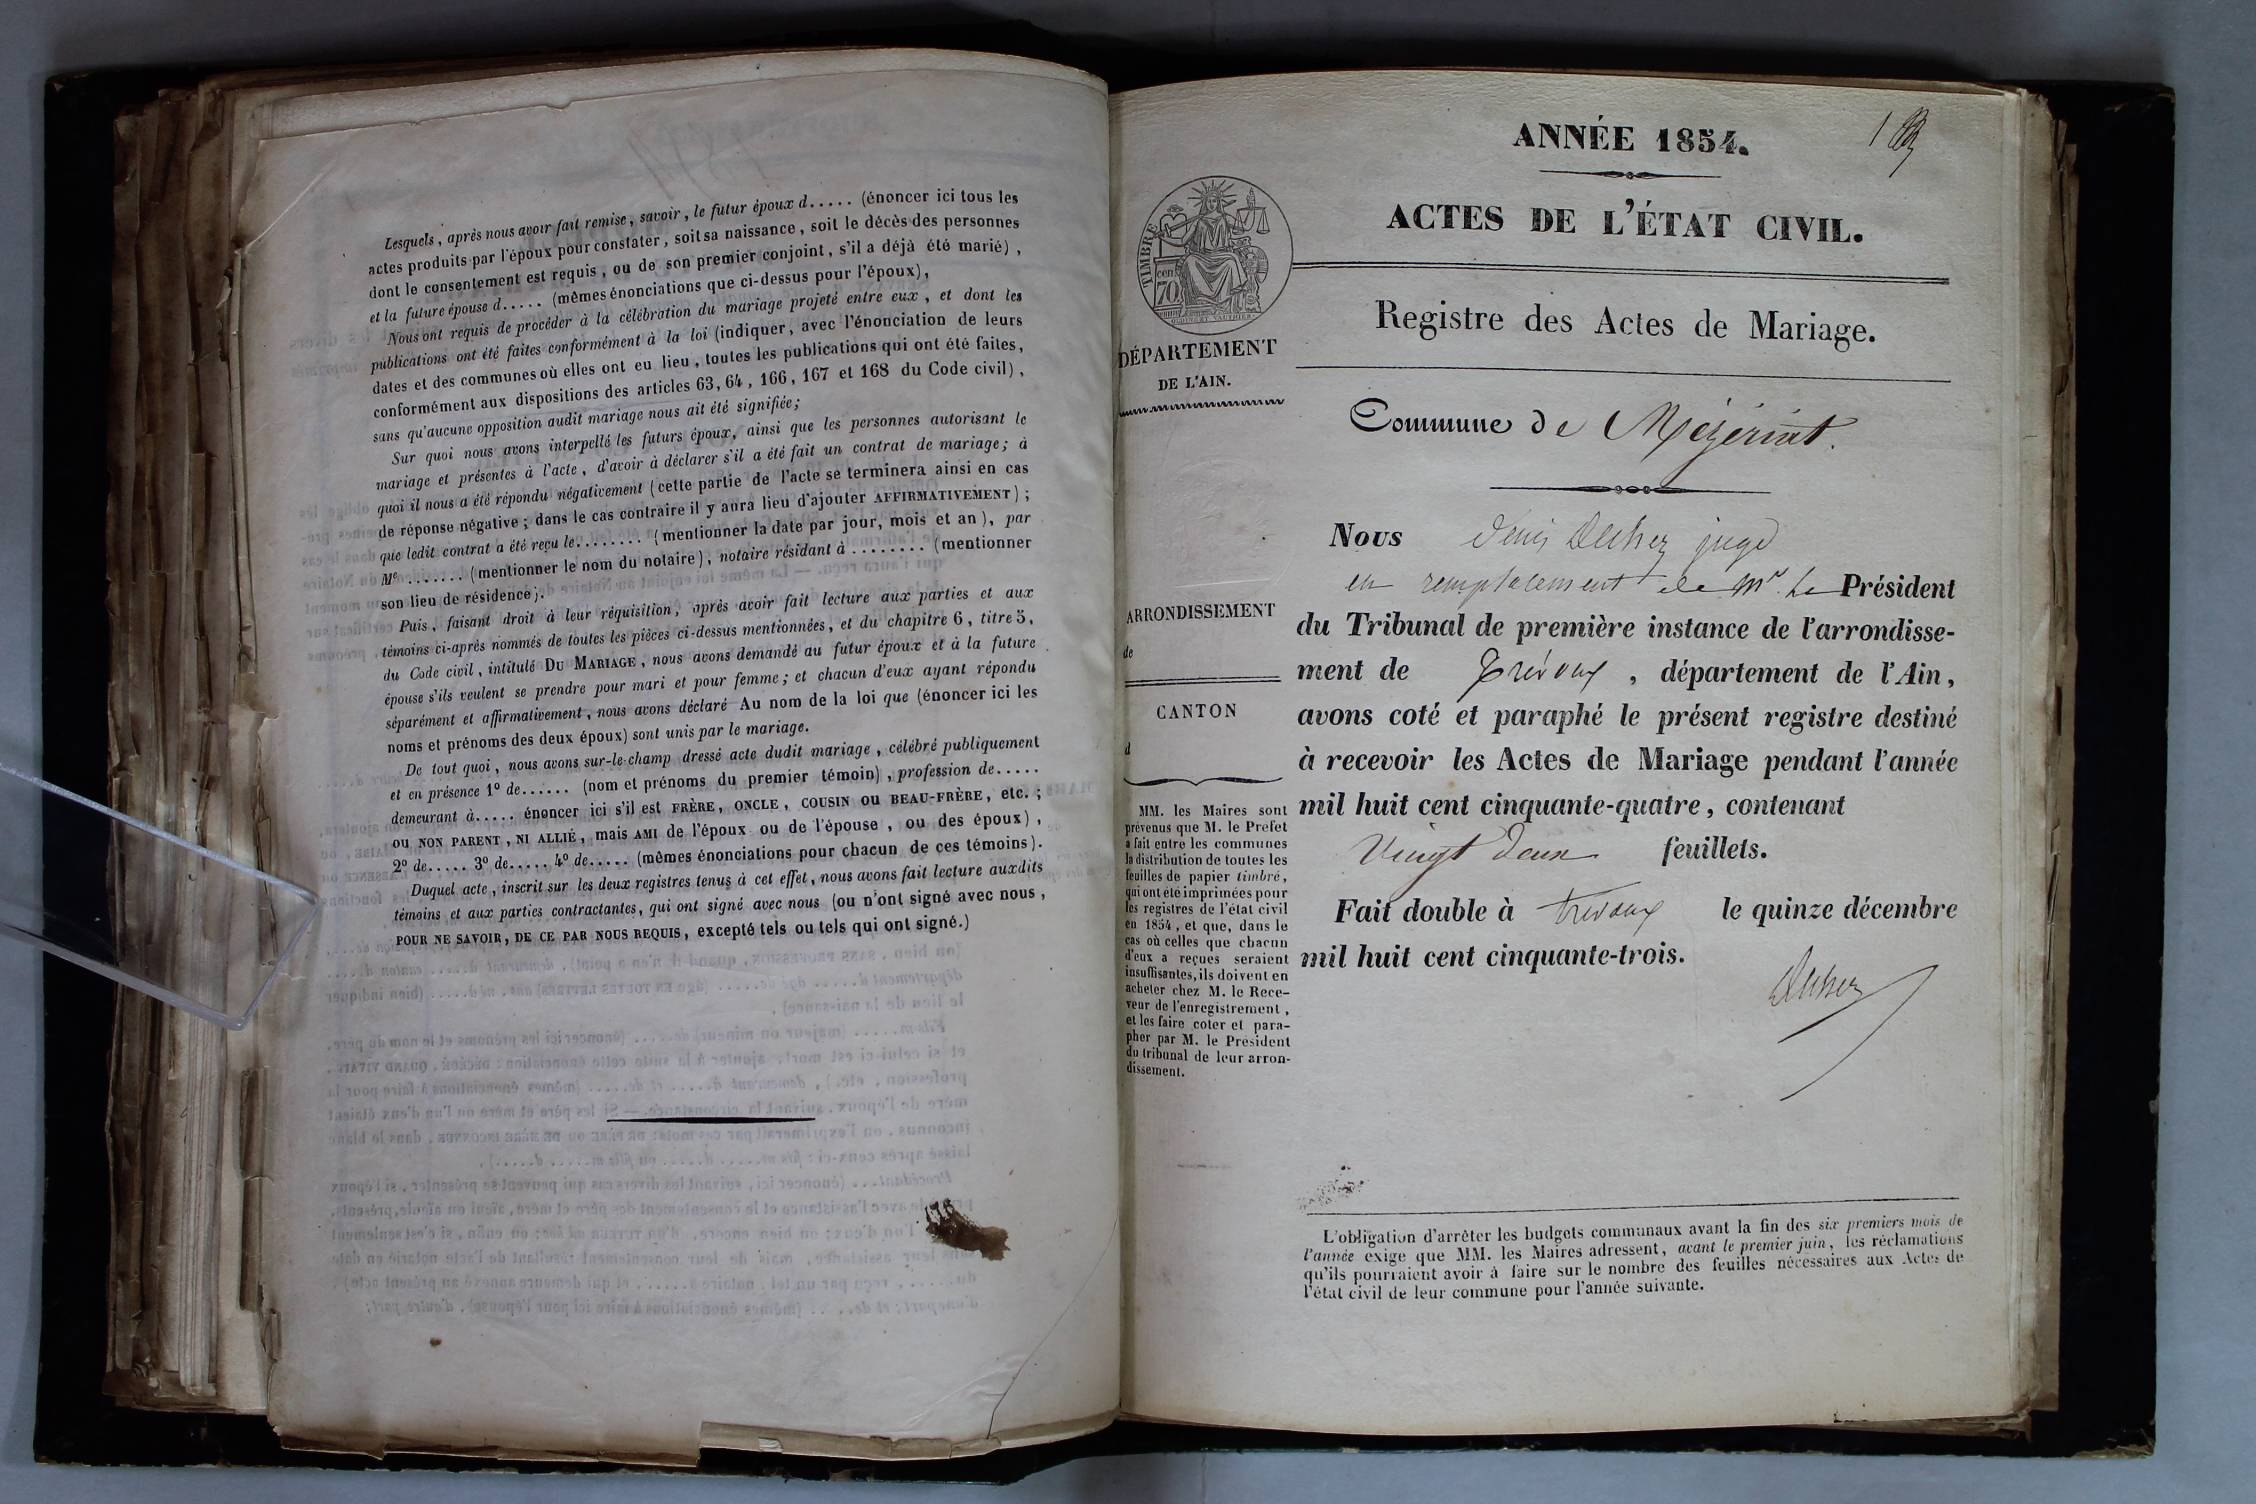 Lesquels, après nous avoir fait remise, savoir, le futur époux d..... (énoncer ici tous les
actes produits par l'époux pour constater, soit sa naissance, soit le décès des personnes
dont le consentement est requis, ou de son premier conjoint, s'il a déjà été marié),
et la future épouse d..... (mêmes énonciations que ci-dessus pour l'époux),
Nous ont requis de procéder à la célébration du mariage projeté entre eux, et dont les
publications ont été faites conformément à la loi (indiquer, avec l'énonciation de leurs
dates et des communes où elles ont eu lieu, toutes les publications qui ont été faites,
conformément aux dispositions des articles 63, 64, 166, 167 et 168 du Code civil),
sans qu'aucune opposition audit mariage nous ait été signifiée;
Sur quoi nous avons interpellé les futurs époux, ainsi que les personnes autorisant le
mariage et présentes à l'acte, d'avoir à déclarer s'il a été fait un contrat de mariage; à
quoi il nous a été répondu négativement (cette partie de l'acte se terminera ainsi en cas
de réponse négative; dans le cas contraire il y aura lieu d'ajouter AFFIRMATIVEMENT);
que ledit contrat a été reçu le........ (mentionner la date par jour, mois et an), par
Me ....... (mentionner le nom du notaire), notaire résidant à ........ (mentionner
son lieu de résidence).
Puis, faisant droit à leur réquisition, après avoir fait lecture aux parties et aux
témoins ci-après nommés de toutes les pièces ci-dessus mentionnées, et du chapitre 6, titre 5,
du Code civil, intitulé DU MARIAGE, nous avons demandé au futur époux et à la future
épouse s'ils veulent se prendre pour mari et pour femme; et chacun d'eux ayant répondu
séparément et affirmativement, nous avons déclaré Au nom de la loi que (énoncer ici les
noms et prénoms des deux époux) sont unis par le mariage.
De tout quoi, nous avons sur-le-champ dressé acte dudit mariage, célébré publiquement
et en présence 1º de...... (nom et prénoms du premier témoin), profession de.....
demeurant à..... énoncer ici s'il est FRÈRE, ONCLE, COUSIN OU BEAU-FRÈRE, etc.;
OU NON PARENT, NI ALLIÉ, mais AMI de l'époux ou de l'épouse, ou des époux),
2º de..... 3º de..... 4º de..... (mêmes énonciations pour chacun de ces témoins).
Duquel acte, inscrit sur les deux registres tenus à cet effet, nous avons fait lecture auxdits
témoins et aux parties contractantes, qui ont signé avec nous (ou n'ont signé avec nous,
POUR NE SAVOIR, DE CE PAR NOUS REQUIS, excepté tels ou tels qui ont signé.)
ANNÉE 1854.
ACTES DE L'ÉTAT CIVIL.
TIMBRE
70
Registre des Actes de Mariage.
DÉPARTEMENT
DE L'AIN.
Commune de Mézériat.
ARRONDISSEMENT
de
CANTON
d
MM. les Maires sont
prévenus que M. le Préfet
a fait entre les communes
la distribution de toutes les
feuilles de papier timbré,
qui ont été imprimées pour
les registres de l'état civil
en 1854, et que, dans le
cas où celles que chacun
d'eux a reçues seraient
insuffisantes, ils doivent en
acheter chez M. le Rece-
veur de l'enregistrement,
et les faire coter et para-
pher par M. le Président
du tribunal de leur arron-
dissement.
Nous Denis juge
en remplacement de Mr. le Président
du Tribunal de première instance de l'arrondisse-
ment de Trévoux, département de l'Ain,
avons coté et paraphé le présent registre destiné
à recevoir les Actes de Mariage pendant l'année
mil huit cent cinquante-quatre, contenant
Vingt deux feuillets.
Fait double à Trévoux le quinze décembre
mil huit cent cinquante-trois.
L'obligation d'arrêter les budgets communaux avant la fin des six premiers mois de
l'année exige que MM. les Maires adressent, avant le premier juin, les réclamations
qu'ils pourraient avoir à faire sur le nombre des feuilles nécessaires aux Actes de
l'état civil de leur commune pour l'année suivante.